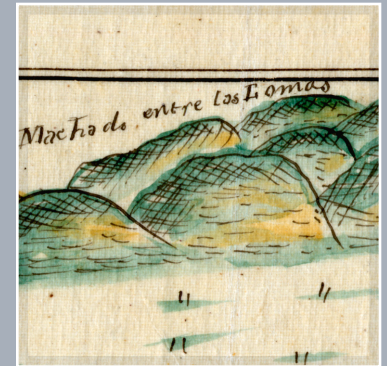 Machado entre las Lomas